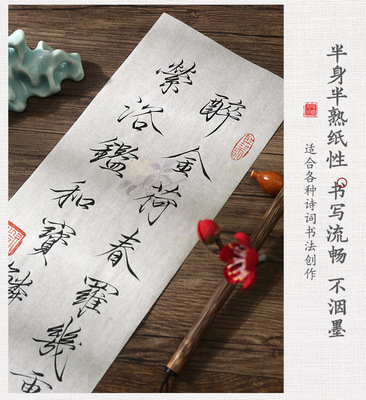 半身半熟纸性 书写流畅 不洇墨
适合各种诗词书法创作
醉金荷春羅幾重
縈浴鑑和寶麟